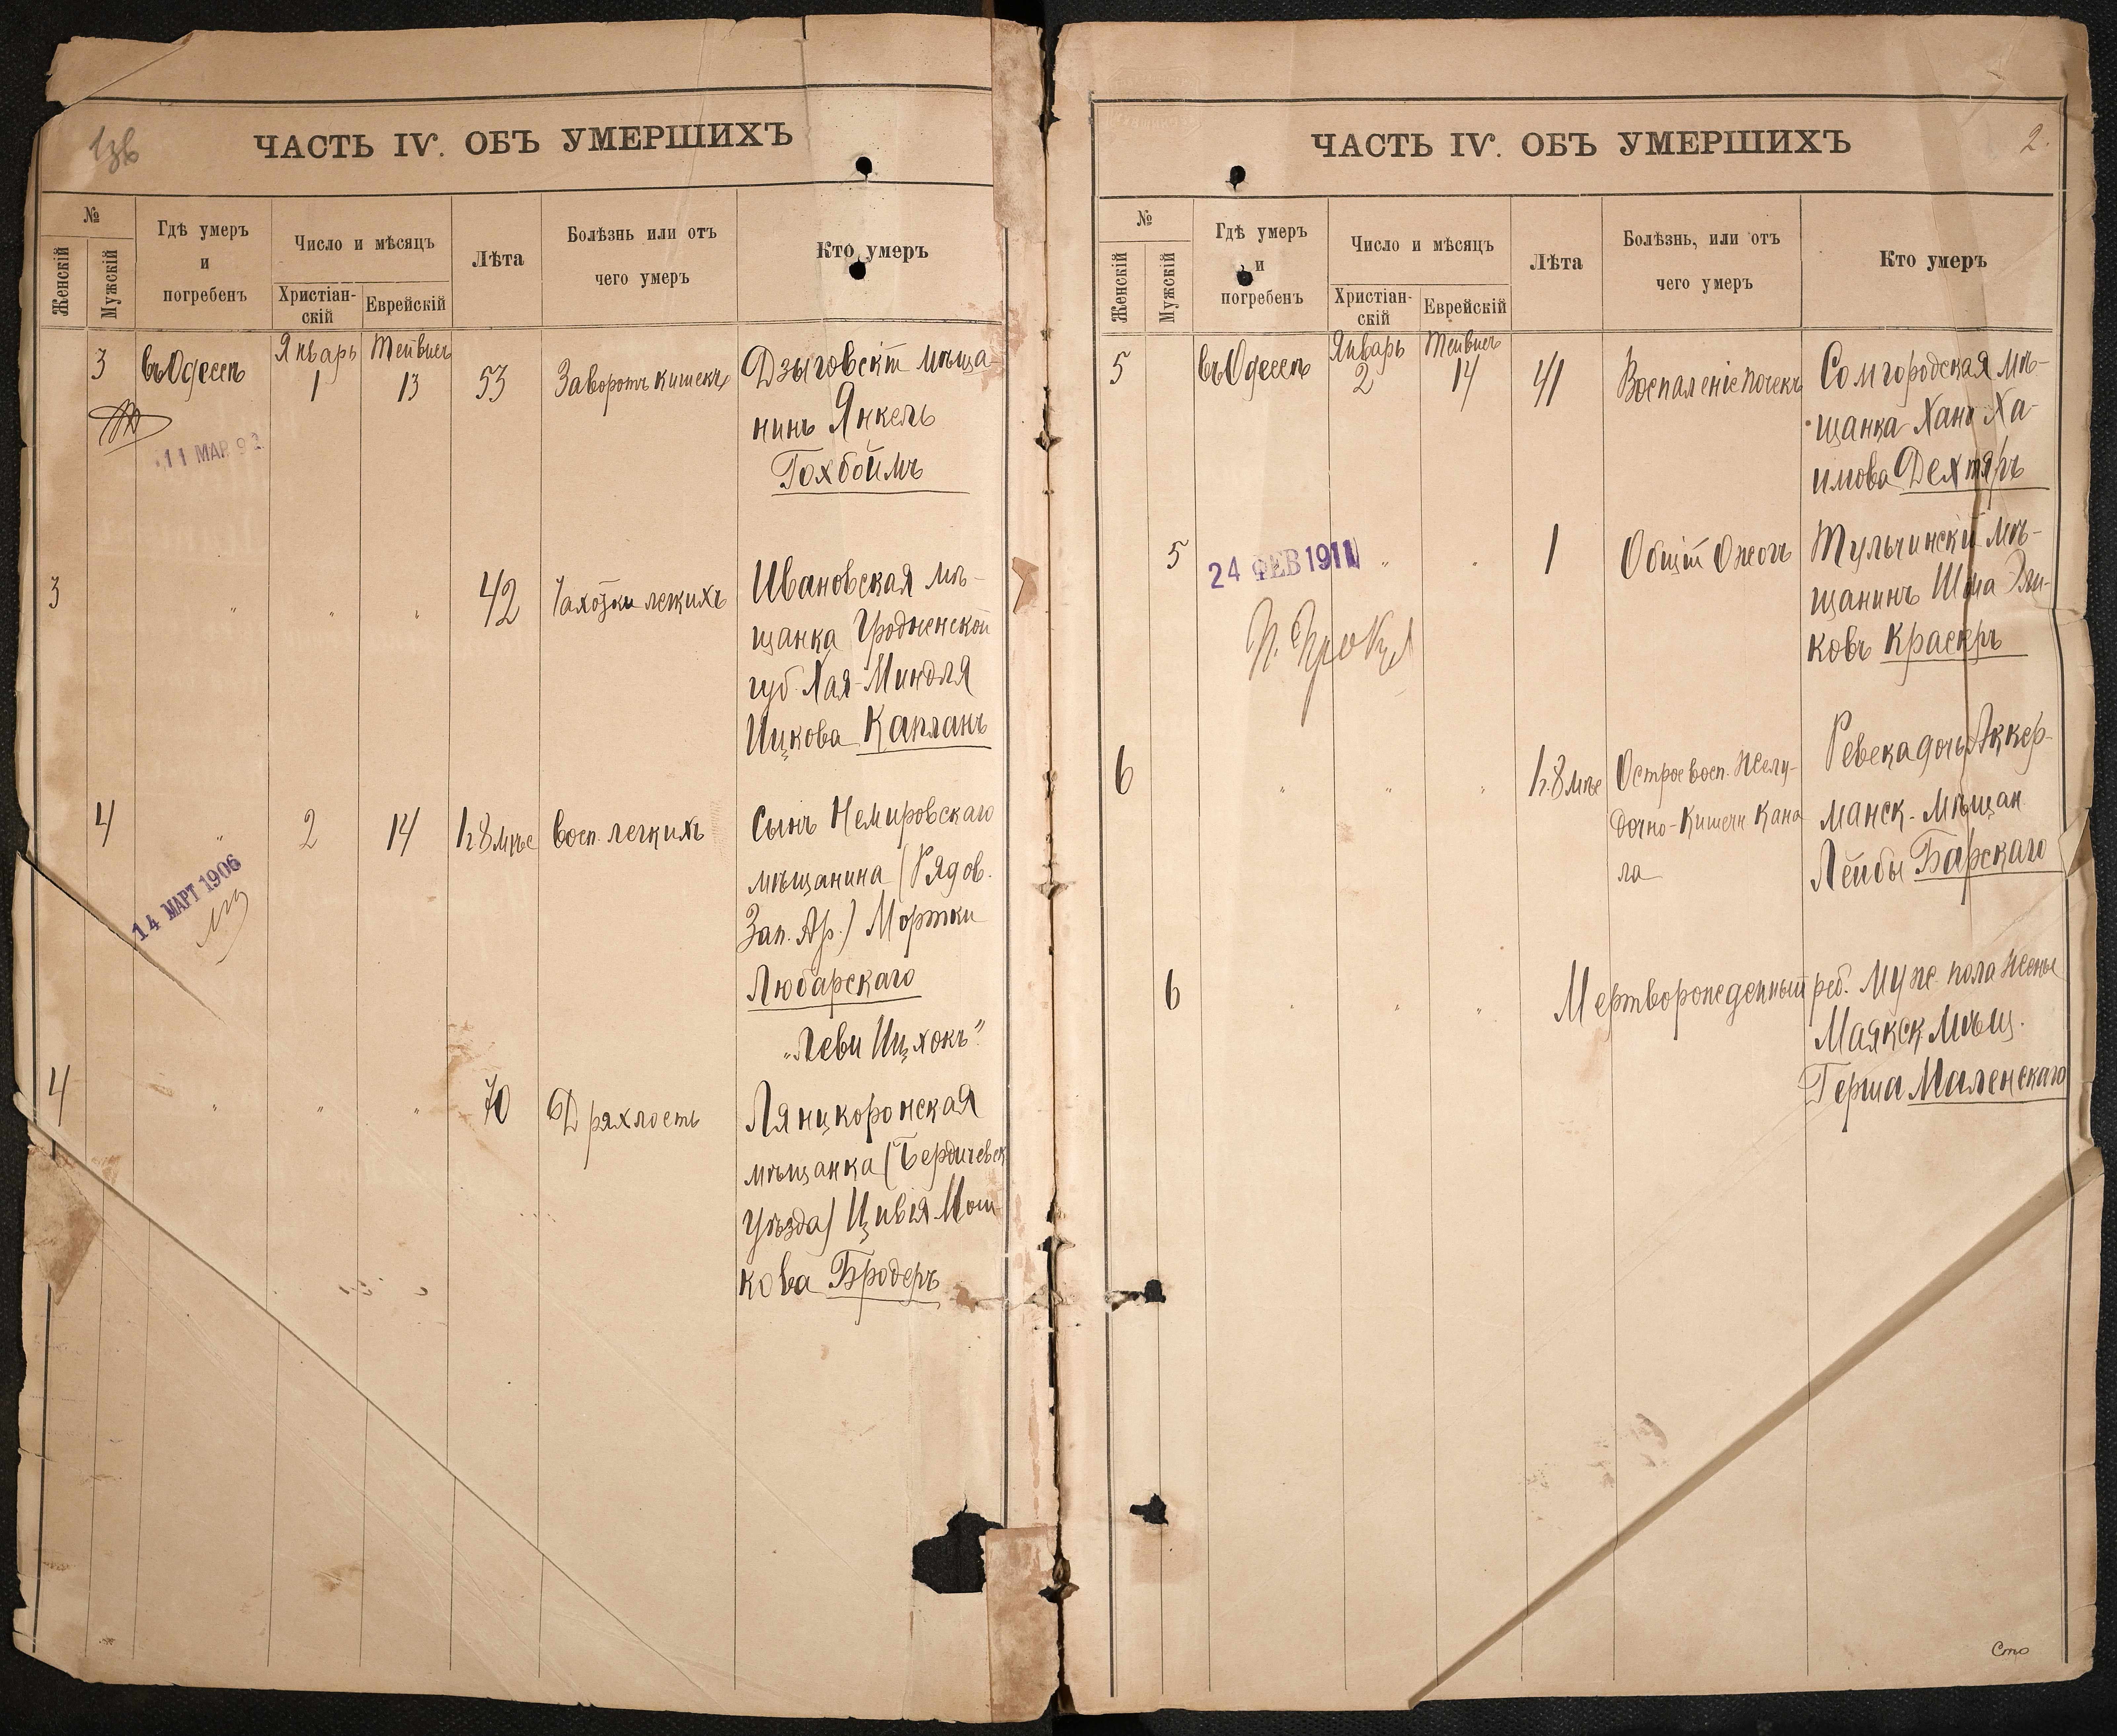 ЧАСТЬ IV. ОБЪ УМЕРШИХЪ
№
Женскій
Мужскій
Гдѣ умеръ
и
погребенъ
Число и мѣсяцъ
Христіан-
скій
Еврейскій
Лѣта
Болѣзнь или отъ
чего умеръ
Кто умеръ
3
въ Одессѣ
Январь
1
Тейвисъ
13
53
Заворотъ кишекъ
Дзыговскій мѣща-
нинъ Янкель
Гохбоймъ
11 МАР 92
3
"
"
"
42
Чахотки легкихъ
Ивановская мѣ-
щанка Гродненской
губ. Хая-Миндля
Ицкова Капланъ
4
"
2
14
1г. 8 мѣс
Восп. легкихъ
Сынъ Немировскаго
мѣщанина (Рядов.
Зап. Ар.) Мортки
Любарскаго
„Леви Ицхокъ"
14 МАРТ 1906
4
"
"
"
70
Дряхлость
Лянцкоронская
мѣщанка (Бердичевск
уѣзда) Цивія Мош-
кова Бродеръ
ЧАСТЬ IV. ОБЪ УМЕРШИХЪ
2.
№
Женскій
Мужскій
Гдѣ умеръ
и
погребенъ
Число и мѣсяцъ
Христіан-
скій
Еврейскій
Лѣта
Болѣзнь, или отъ
чего умеръ
Кто умеръ
5
въ Одессѣ
Январь
2
Тейвисъ
14
41
Воспаленіе почекъ
Сомгородская мѣ-
щанка Хана Ха-
имова Дехтяръ
5
24 ФЕВ 1911
"
"
1
Общій Ожогъ
Тульчинскій мѣ-
щанинъ Шома
ковъ Красеръ
6
"
"
"
1г. 8 мѣс
Острое восп. Желу-
дочно-Кишечн Кана
ла
Ревека дочь Аккер-
манск. мѣщан.
Лейбы Барскаго
6
"
"
"
Мертворожденный реб. Муж. пола Жены
Маякск. Мѣщ.
Герша Маленскаго
Сто